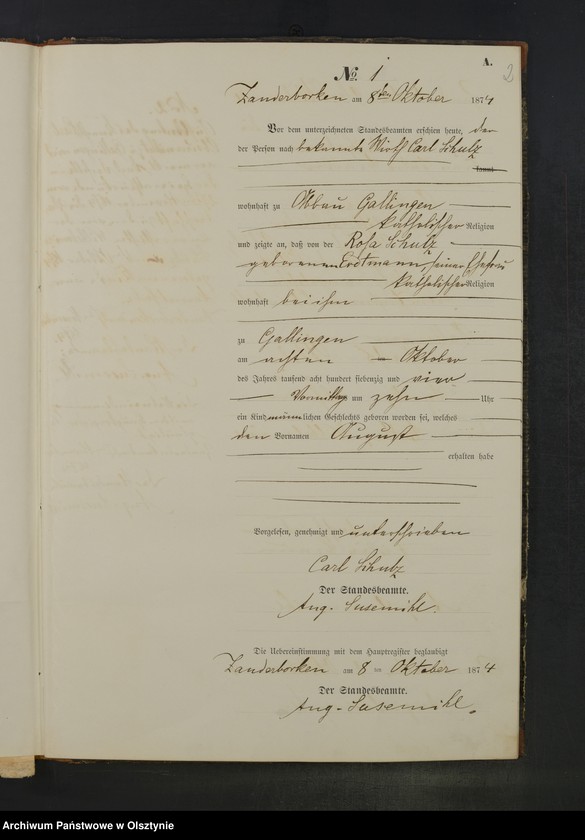 A.
2
No. 1
Zanderborken am 8ten Oktober 1874
Vor dem unterzeichneten Standesbeamten erschien heute, der
der Person nach bekannte Wirth Carl Schulz
kannt
wohnhaft zu Abbau Gallingen
katholischer Religion
und zeigte an, daß von der Rosa Schulz
geborenen Erdtmann, seiner Ehefrau
katholischer Religion
wohnhaft bei ihm
zu Gallingen
am achten Oktober
des Jahres tausend acht hundert siebenzig und vier
Vormittag um zehn Uhr
ein Kind männlichen Geschlechts geboren worden sei, welches
den Vornamen August
erhalten habe
Vorgelesen, genehmigt und unterschrieben
Carl Schulz
Der Standesbeamte.
Aug. Susemihl.
Die Uebereinstimmung mit dem Hauptregister beglaubigt
Zanderborken am 8 ten Oktober 1874
Der Standesbeamte.
Aug. Susemihl.
Archiwum Państwowe w Olsztynie